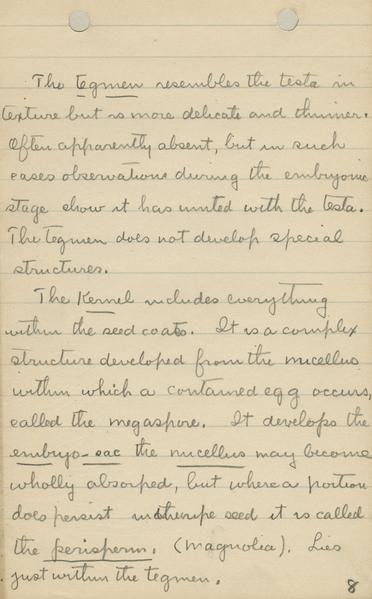 The tegmen resembles the testa in
texture but is more delicate and thinner.
Often apparently absent, but in such
cases observations during the embryonic
stage show it has united with the testa.
The tegmen does not develop special
structures.
The Kernel includes everything
within the seed coats. It is a complex
structure developed from the nucellus
within which a contained egg occurs,
called the megaspore. It develops the
embryo-sac the nucellus may become
wholly absorped, but where a portion
does persist in the ripe seed it is called
the perisperm. (Magnolia). Lies
just within the tegmen.
8